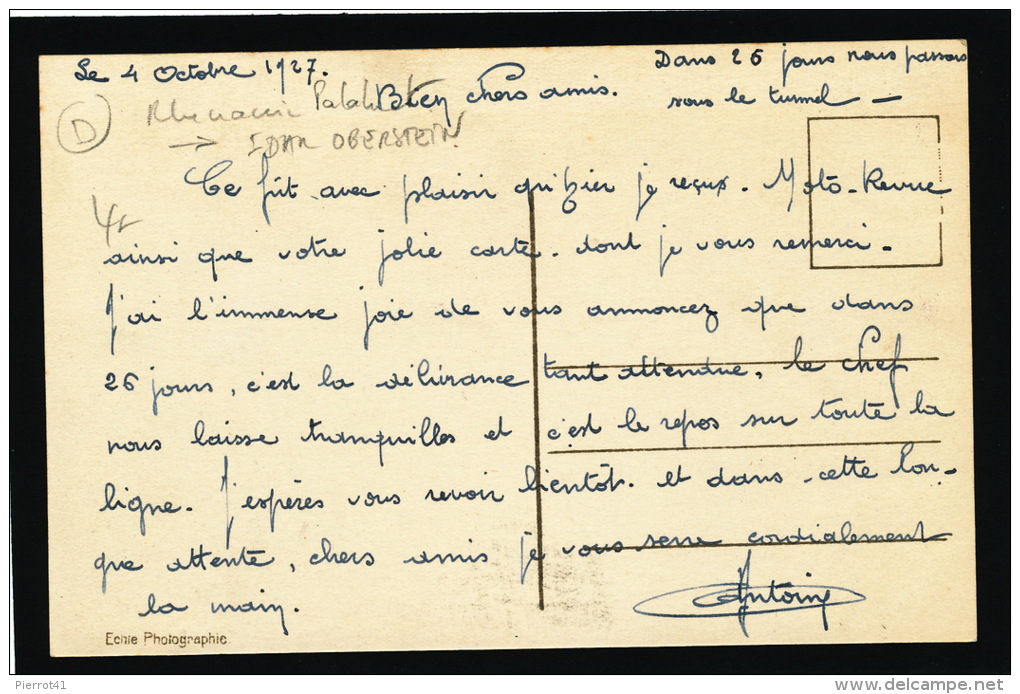 Le 4 Octobre 1927.
Dans 26 jours nous passons
sous le tunnel —
Bien chers amis.
D
Rhenanie Palati
→ IDAR OBERSTEIN
Ce fut avec plaisir qu'hier je reçus. Moto-Revue
ainsi que votre jolie carte. dont je vous remerci.
J'ai l'immense joie de vous annoncez que dans
26 jours, c'est la délivrance tant attendue, le chef
nous laisse tranquilles et c'est le repos sur toute la
ligne. J'espères vous revoir bientôt. et dans cette lon-
que attente, chers amis je vous serre cordialement
la main.
Antoine
Echte Photographie
Pierrot41
delcampe.net